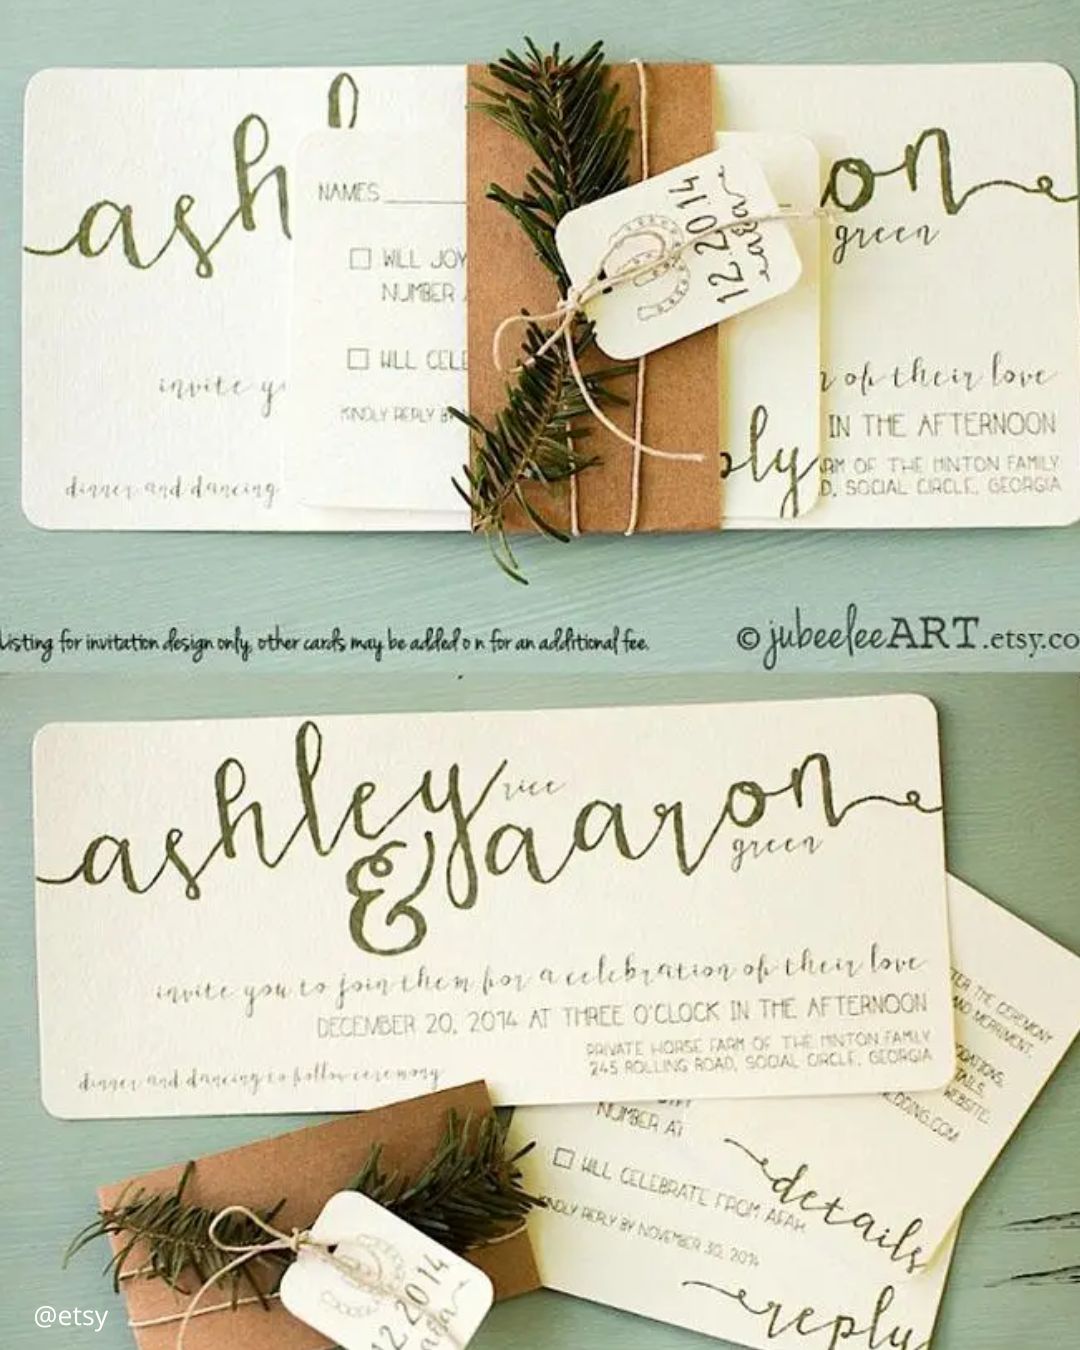 ash
on
green
NAMES
WILL JOY
NUMBER A
WILL CELE
KINDLY REPLY BY
12.20.2014
invite y
of their love
IN THE AFTERNOON
ARM OF THE HINTON FAMILY
D, SOCIAL CIRCLE, GEORGIA
dinner and dancing
ply
Listing for invitation design only, other cards may be added on for an additional fee.
© jubeeleeART.etsy.co
ashley rice
& aaron
green
invite you to join them for a celebration of their love
DECEMBER 20, 2014 AT THREE O'CLOCK IN THE AFTERNOON
PRIVATE HORSE FARM OF THE HINTON FAMILY
245 ROLLING ROAD, SOCIAL CIRCLE, GEORGIA
dinner and dancing to follow ceremony
TER THE CEREMONY
AND MERRIMENT.
DATIONS,
TAILS,
WEBSITE:
EDDING.COM
details
NUMBER AT
WILL CELEBRATE FROM AFAR
KINDLY REPLY BY NOVEMBER 30, 2014
reply
12.2014
@etsy